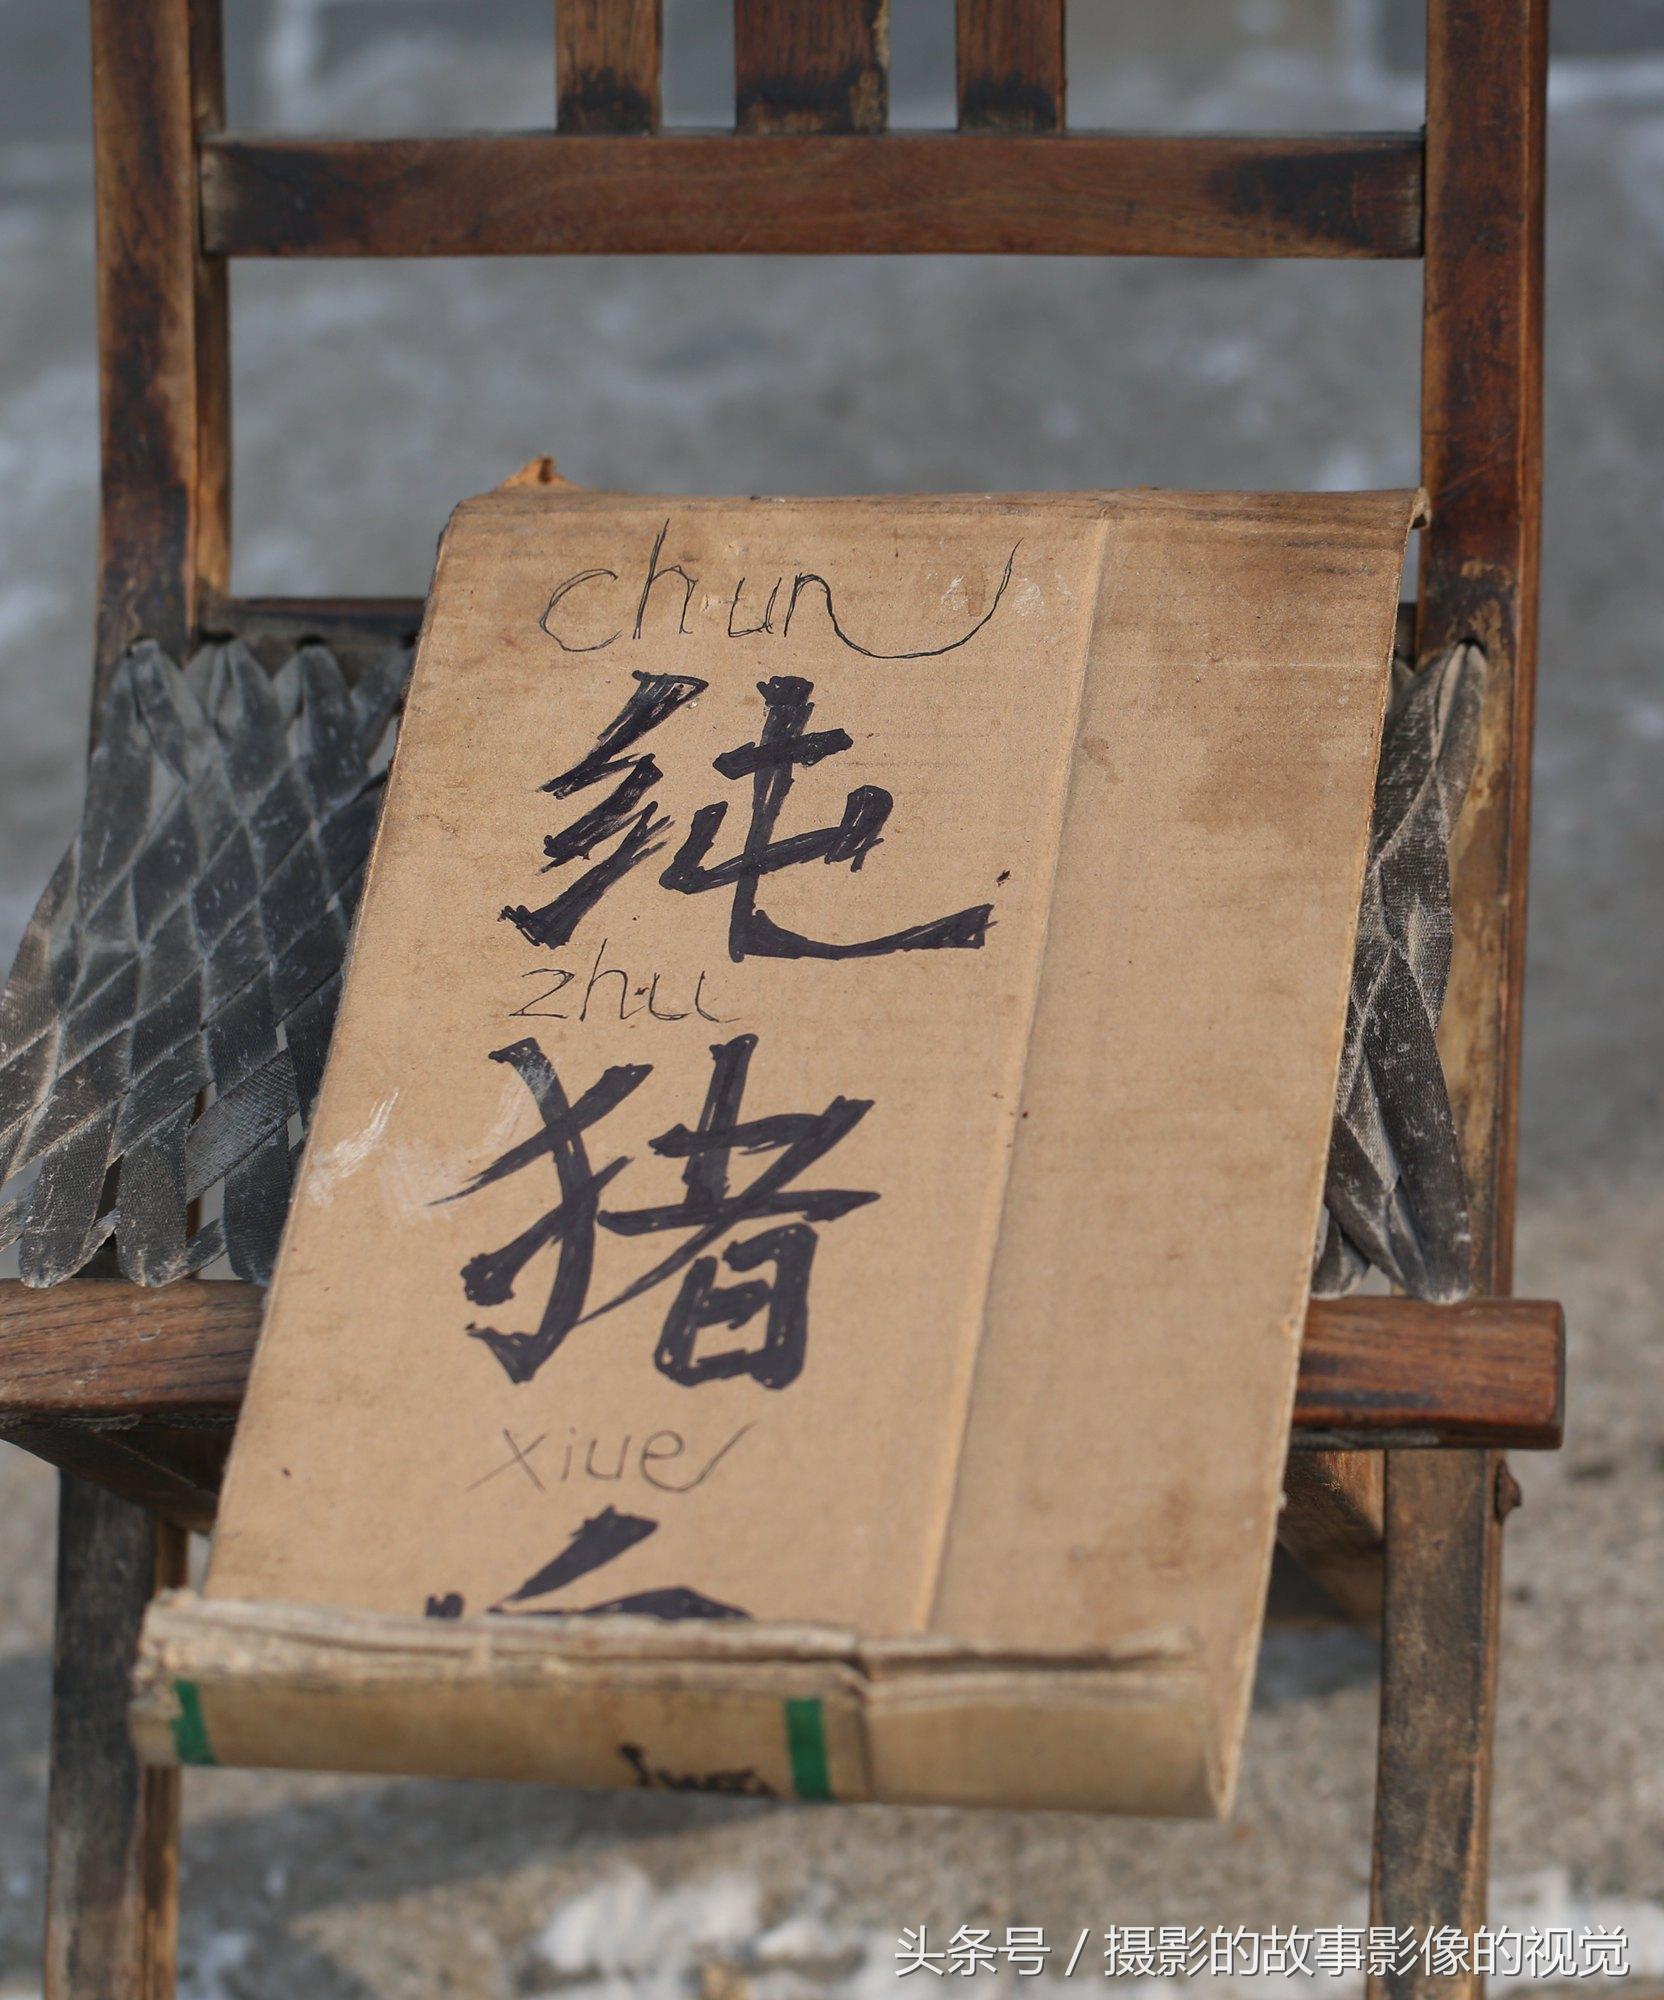 chun
纯
zhu
猪
xiue
头条号 / 摄影的故事影像的视觉